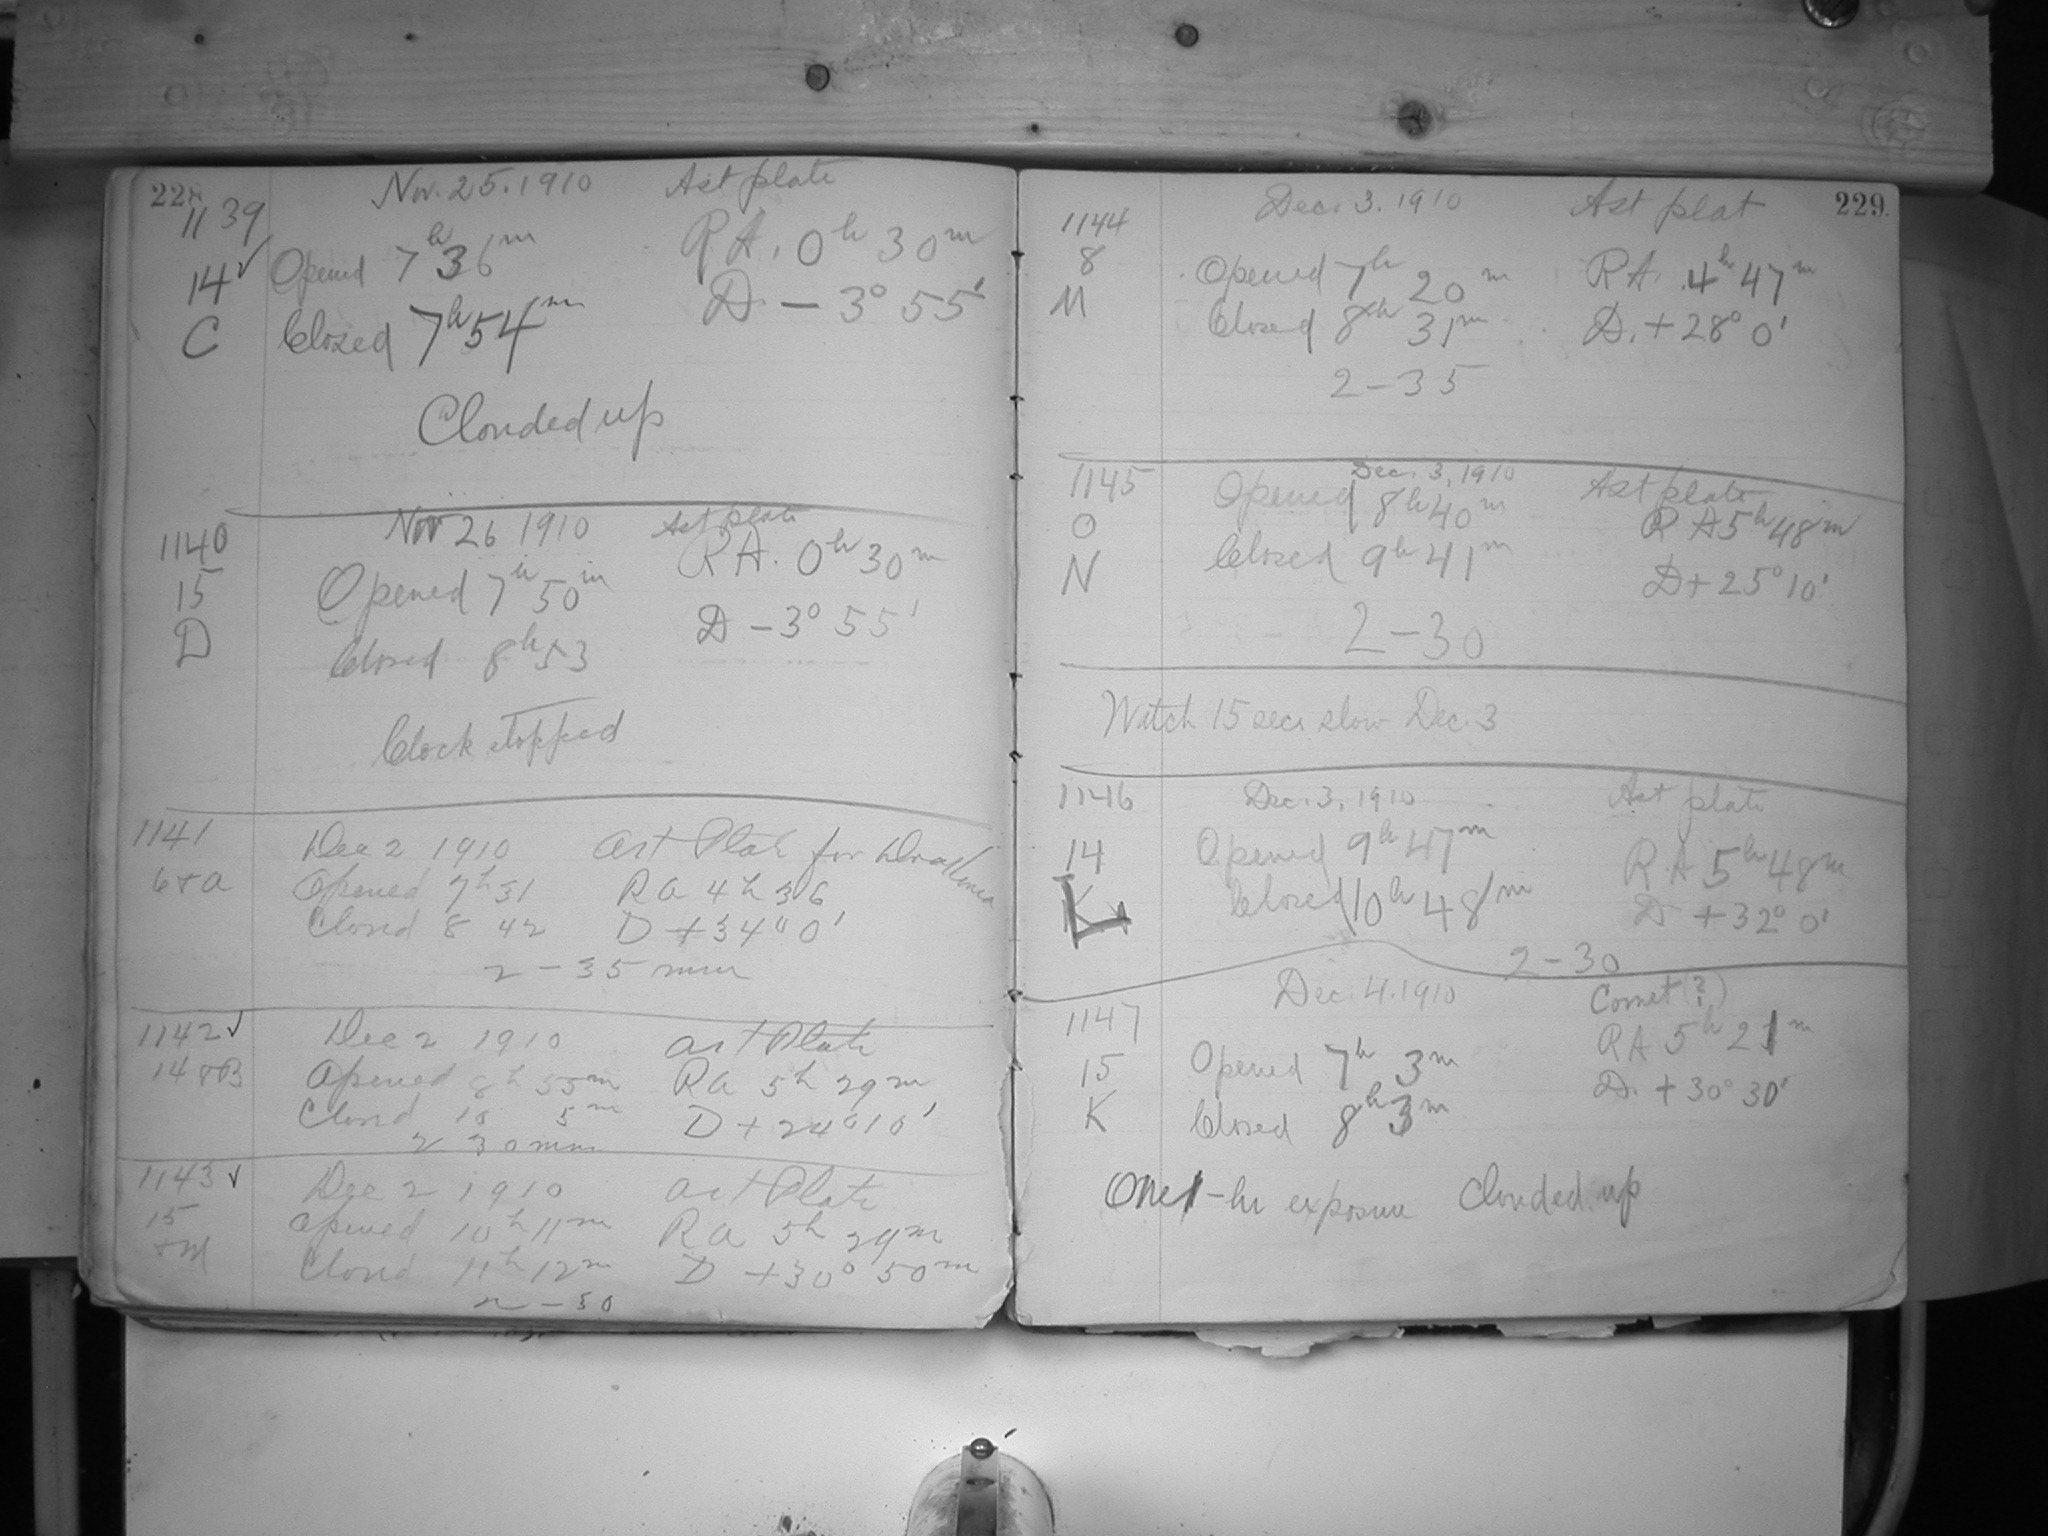 228
1139
Nov. 25. 1910 Ast plate
14✓ Opened 7h 36m R A. 0h 30m
C Closed 7h 54m D. - 3° 55'
Clouded up
1140 Nov 26 1910 Ast plate
15 Opened 7h 50m R A. 0h 30m
D Closed 8h 53 D - 3° 55'
Clock stopped
1141 Dec 2 1910 Ast Plate for
Opened 7h 31 R a 4h 36
Closed 8 42 D +34° 0'
2 - 35 mm
1142✓ Dec 2 1910 Ast Plate
14 Opened 8h 55m Ra 5h 29m
Closed 10 5m D + 24° 10'
2 30 mm
1143✓ Dec 2 1910 Ast Plate
15 Opened 10h 11m R a 5h 29m
Closed 11h 12m D +30° 50m
2 - 30
229
1144 Dec. 3. 1910 Ast plat
8 Opened 7h 20m R A. 4h 47m
M Closed 8h 31m D. + 28° 0'
2 - 35
1145 Dec. 3, 1910 Ast plate
O Opened 8h 40m R A 5h 48m
N Closed 9h 41m D + 25° 10'
2 - 30
Watch 15 secs slow Dec. 3
1146 Dec. 3, 1910 Ast plate
14 Opened 9h 47m R A 5h 48m
Closed 10h 48m D + 32° 0'
2 - 30
1147 Dec. 4. 1910 Comet (?)
15 Opened 7h 3m R A 5h 21m
K Closed 8h 3m D. + 30° 30'
One - hr exposure Clouded up